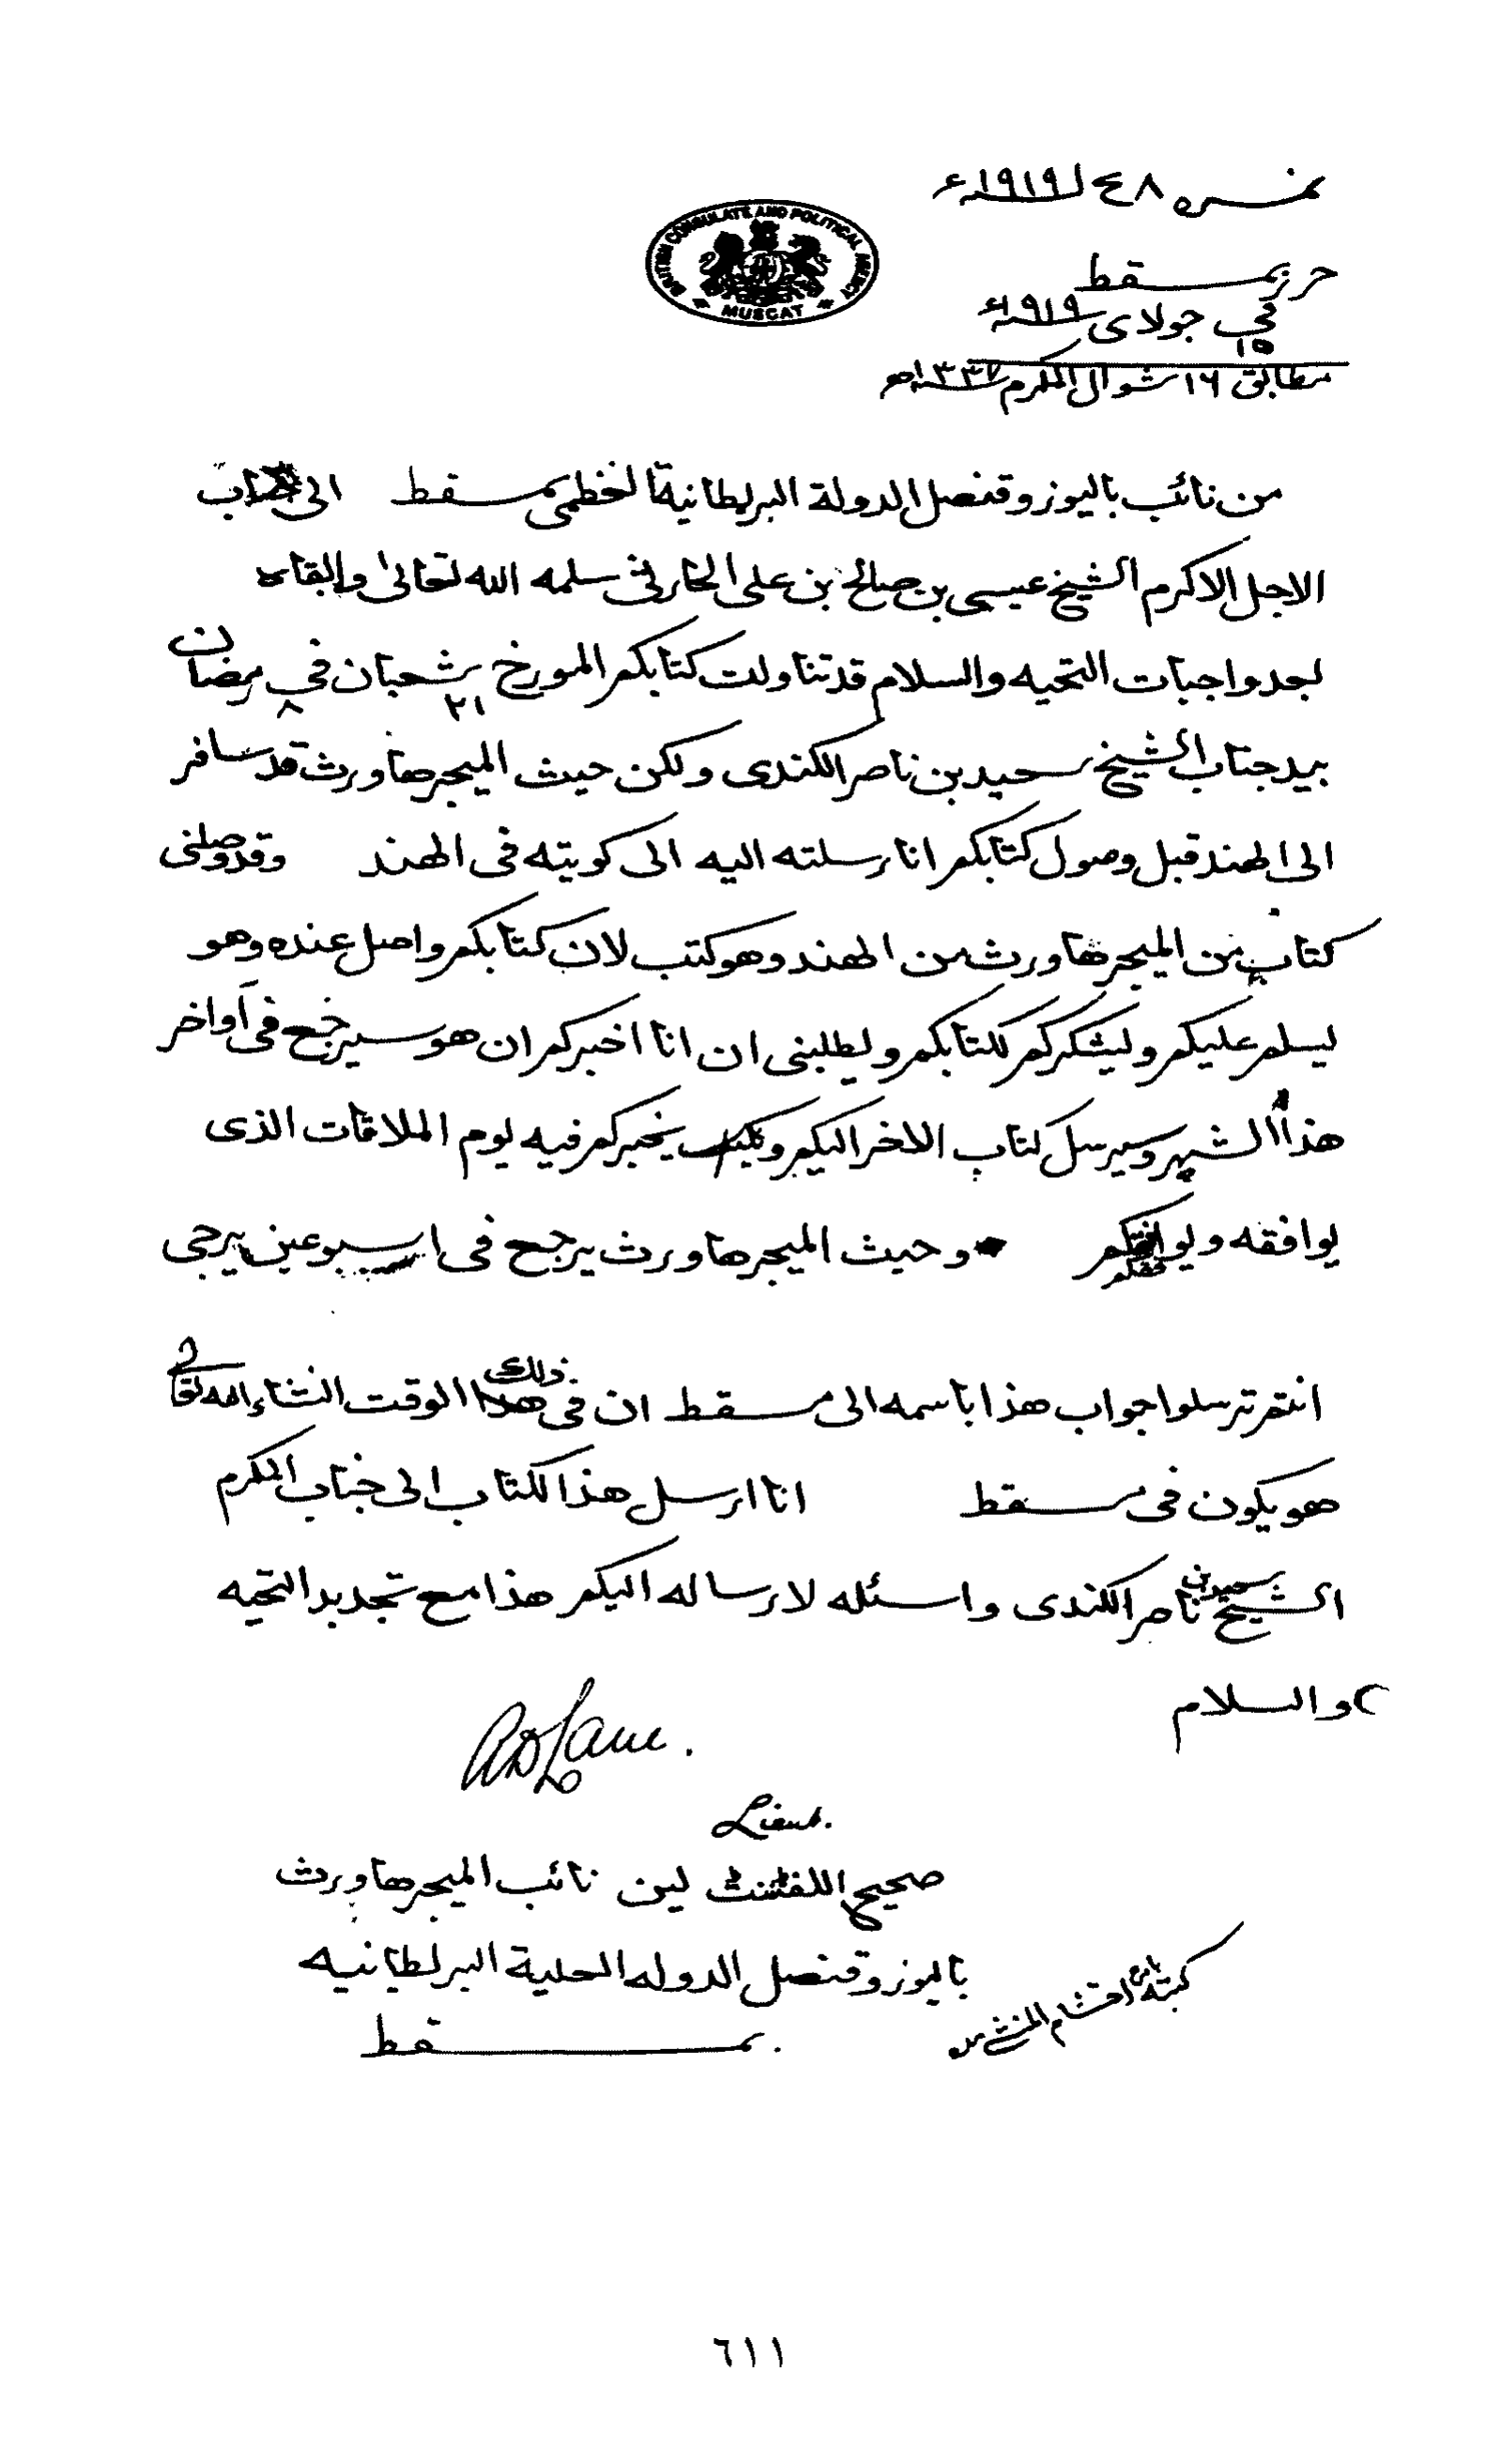 نمره ٤٨ لـ١٩١٩ء
BRITISH CONSULATE AND POLITICAL AGENCY
MUSCAT
حرر بمسقط
في ١٥ جولاى ١٩١٩ء
مطابق ١٦ شوال المكرم ١٣٣٧ھ
من نائب باليوز وقنصل الدولة البريطانية العظمى بمسقط الى جناب
الاجل الاكرم الشيخ عيسى بن صالح بن على الحارثى سلمه الله تعالى وابقاه
بعد واجبات التحيه والسلام قد تناولت كتابكم المورخ ٢١ شعبان في ٨ رمضان
بيد جناب الشيخ سعيد بن ناصر الكندى ولكن حيث الميجر هاورث قد سافر
الى الهند قبل وصول كتابكم انا رسلته اليه الى كويته فى الهند وقد وصلنى
كتاب من الميجر هاورث من الهند وهو كتب لان كتابكم واصل عنده وهو
يسلم عليكم ويشكركم لكتابكم ويطلبنى ان انا اخبركم ان هو سيرجع فى أواخر
هذا الشهر وسيرسل كتاب الاخر اليكم يخبركم فيه يوم الملاقات الذى
يوافقه ويوافقكم وحيث الميجر هاورث يرجع فى اسبوعين يرجى
انتم ترسلوا جواب هذا باسمه الى مسقط ان فى ذلك الوقت انشاء الله تعالى
هو يكون فى مسقط انا ارسل هذا الكتاب الى جناب المكرم
الشيخ سعيد بن ناصر الكندى واسئله لارساله اليكم هذا مع تجديد التحيه
والسلام
Lane.
Lieut.
صحيح اللفٹننٹ لين نائب الميجر هاورث
باليوز وقنصل الدوله العلية البرلطانيه
بمسقط
كتبه احتشام المنشى
٦١١